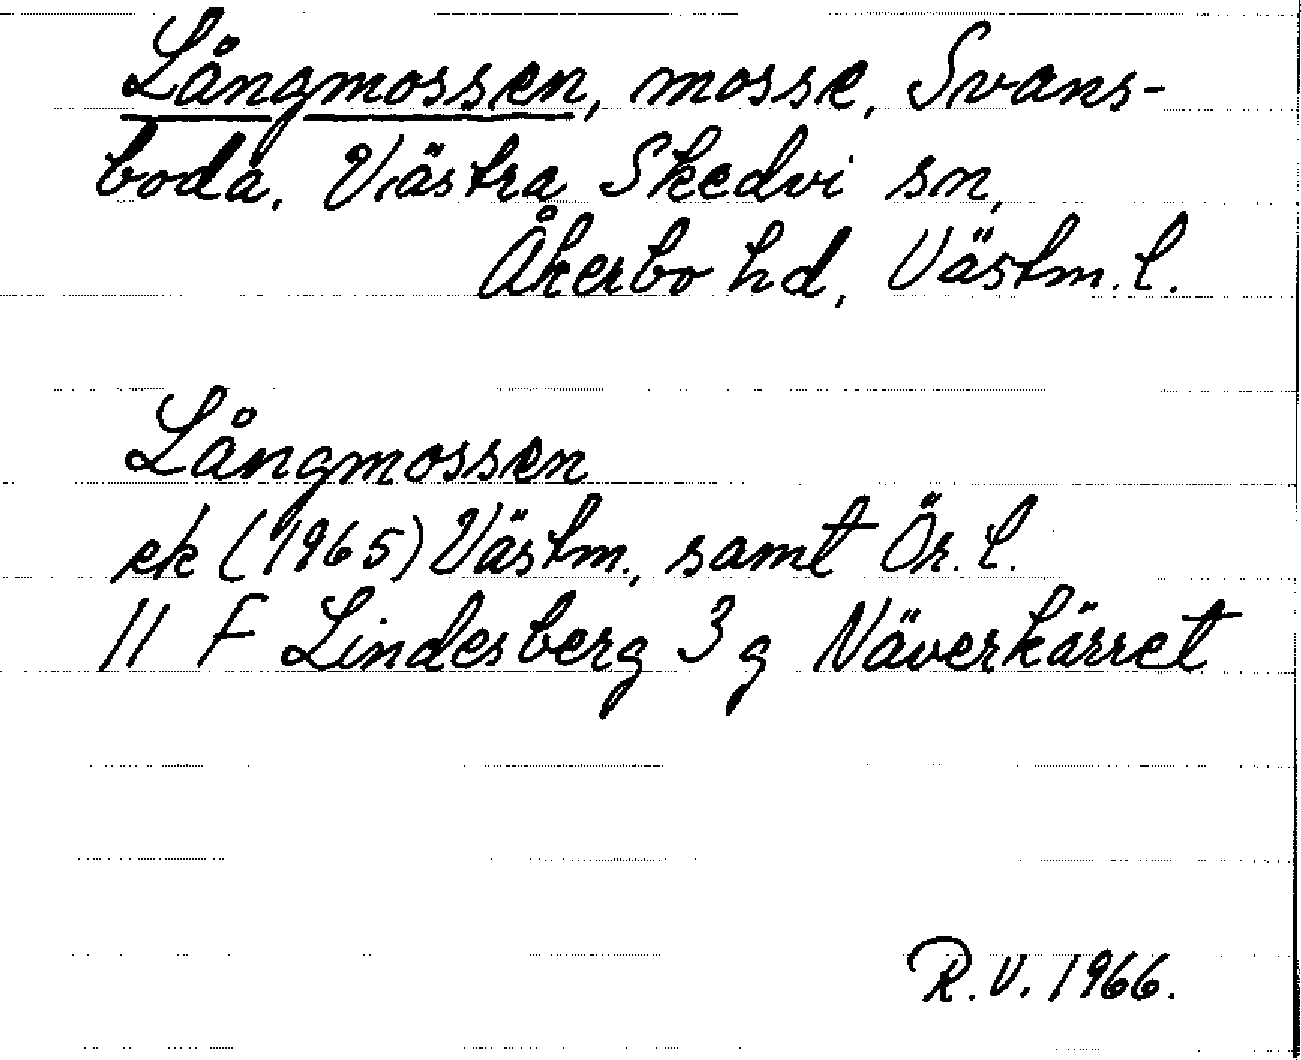 Långmossen, mosse, Svans-
boda, Västra Skedvi sn,
Åkerbo hd, Västm. l.
Långmossen
ek (1965) Västm., samt Ör. l.
11 F Lindesberg 3 g Näverkärret
R.V. 1966.